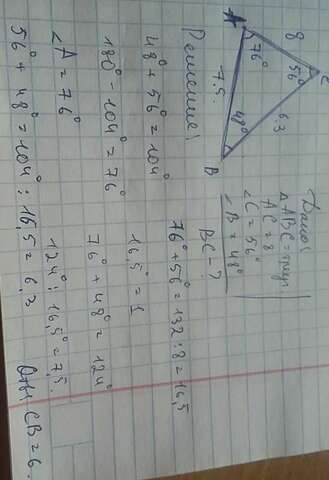 Дано:
△ABC - треуг.
AC = 8
∠C = 56°
∠B = 48°
BC - ?
A
8
C
56°
76°
7.5.
6.3
48°
B
Решение:
48° + 56° = 104°
180° - 104° = 76°
∠A = 76°
76° + 56° = 132 : 8 = 16,5
16,5° = 1
76° + 48° = 124°
124° : 16,5° = 7,5.
56° + 48° = 104° : 16,5 = 6.3
Отв: CB = 6.